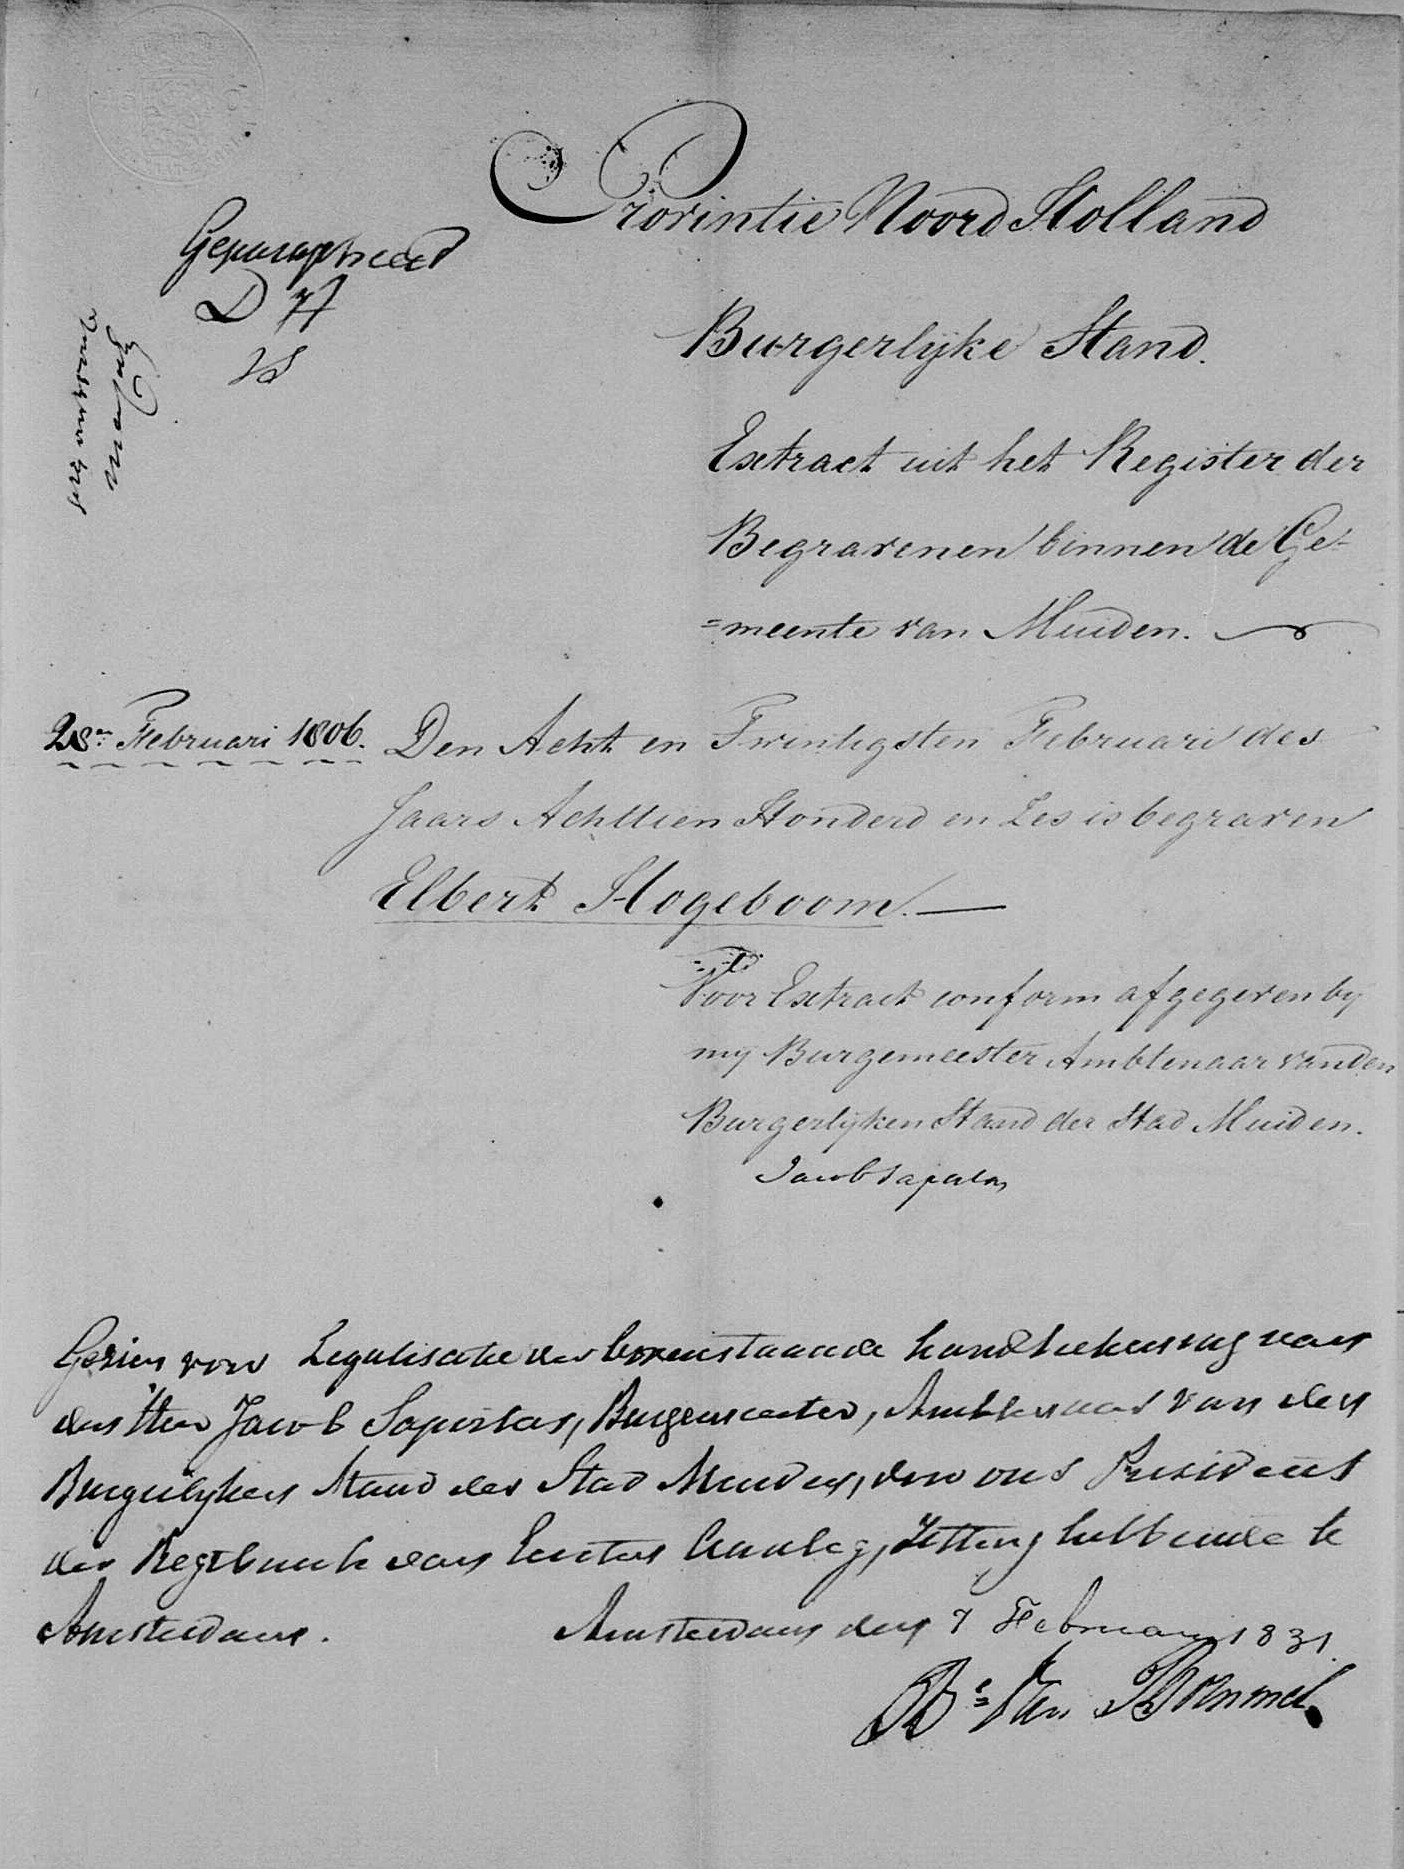 Provintie Noord Holland
Geparapheerd
D H
Burgerlyke Stand.
Extract uit het Register der
Begravenen binnen de Ge-
=meente van Muiden.
28en Februari 1806. Den Acht en Twintigsten Februari des
Jaars Achttien Honderd en Zes is begraven
Elbert Hogeboom. —
Voor Extract conform afgegeven by
my Burgemeester Ambtenaar van den
Burgerlyken Stand der Stad Muiden.
Jacob Saportas
Gezien voor Legalisatie der bovenstaande handtekening van
den Heer Jacob Saportas, Burgemeester, Ambtenaar van den
Burgerlyken Stand der Stad Muiden, door ons President
der Regtbank van Eersten Aanleg, Zitting hebbende te
Amsterdam. Amsterdam den 7 February 1831.
Van Bommel